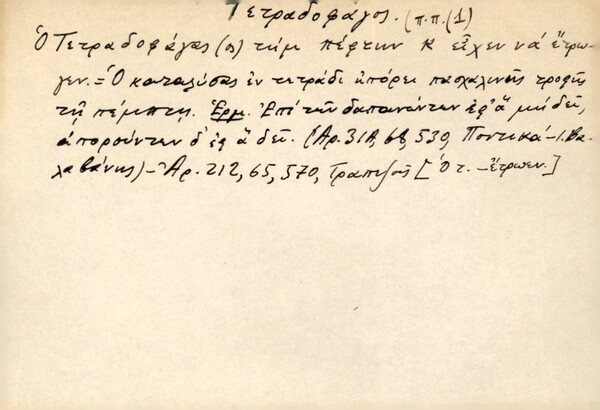 Τετραδοφάγος. (π.π.(1)
Ὁ Τετραδοφάγας (ο) τὴμ πέφτην κ εἶχεν νά ἔτρω-
γεν. = Ὁ καταλύσας ἐν τετράδι ἠπόρει πασχαλινῆς τροφῆς
τῇ πέμπτῃ. Ἑρμ. Ἐπί τῶν δαπανώντων ἐφ' ἅ μή δεῖ,
ἀπορούντων δ' ἐφ' ἅ δεῖ. (Ἀρ. 318, 68, 539, Ποντικά – Ι. Βα-
λαβάνης) – Ἀρ. 212, 65, 570, Τραπεζοῦς [Ὁ τ. – ἔτρωεν.]